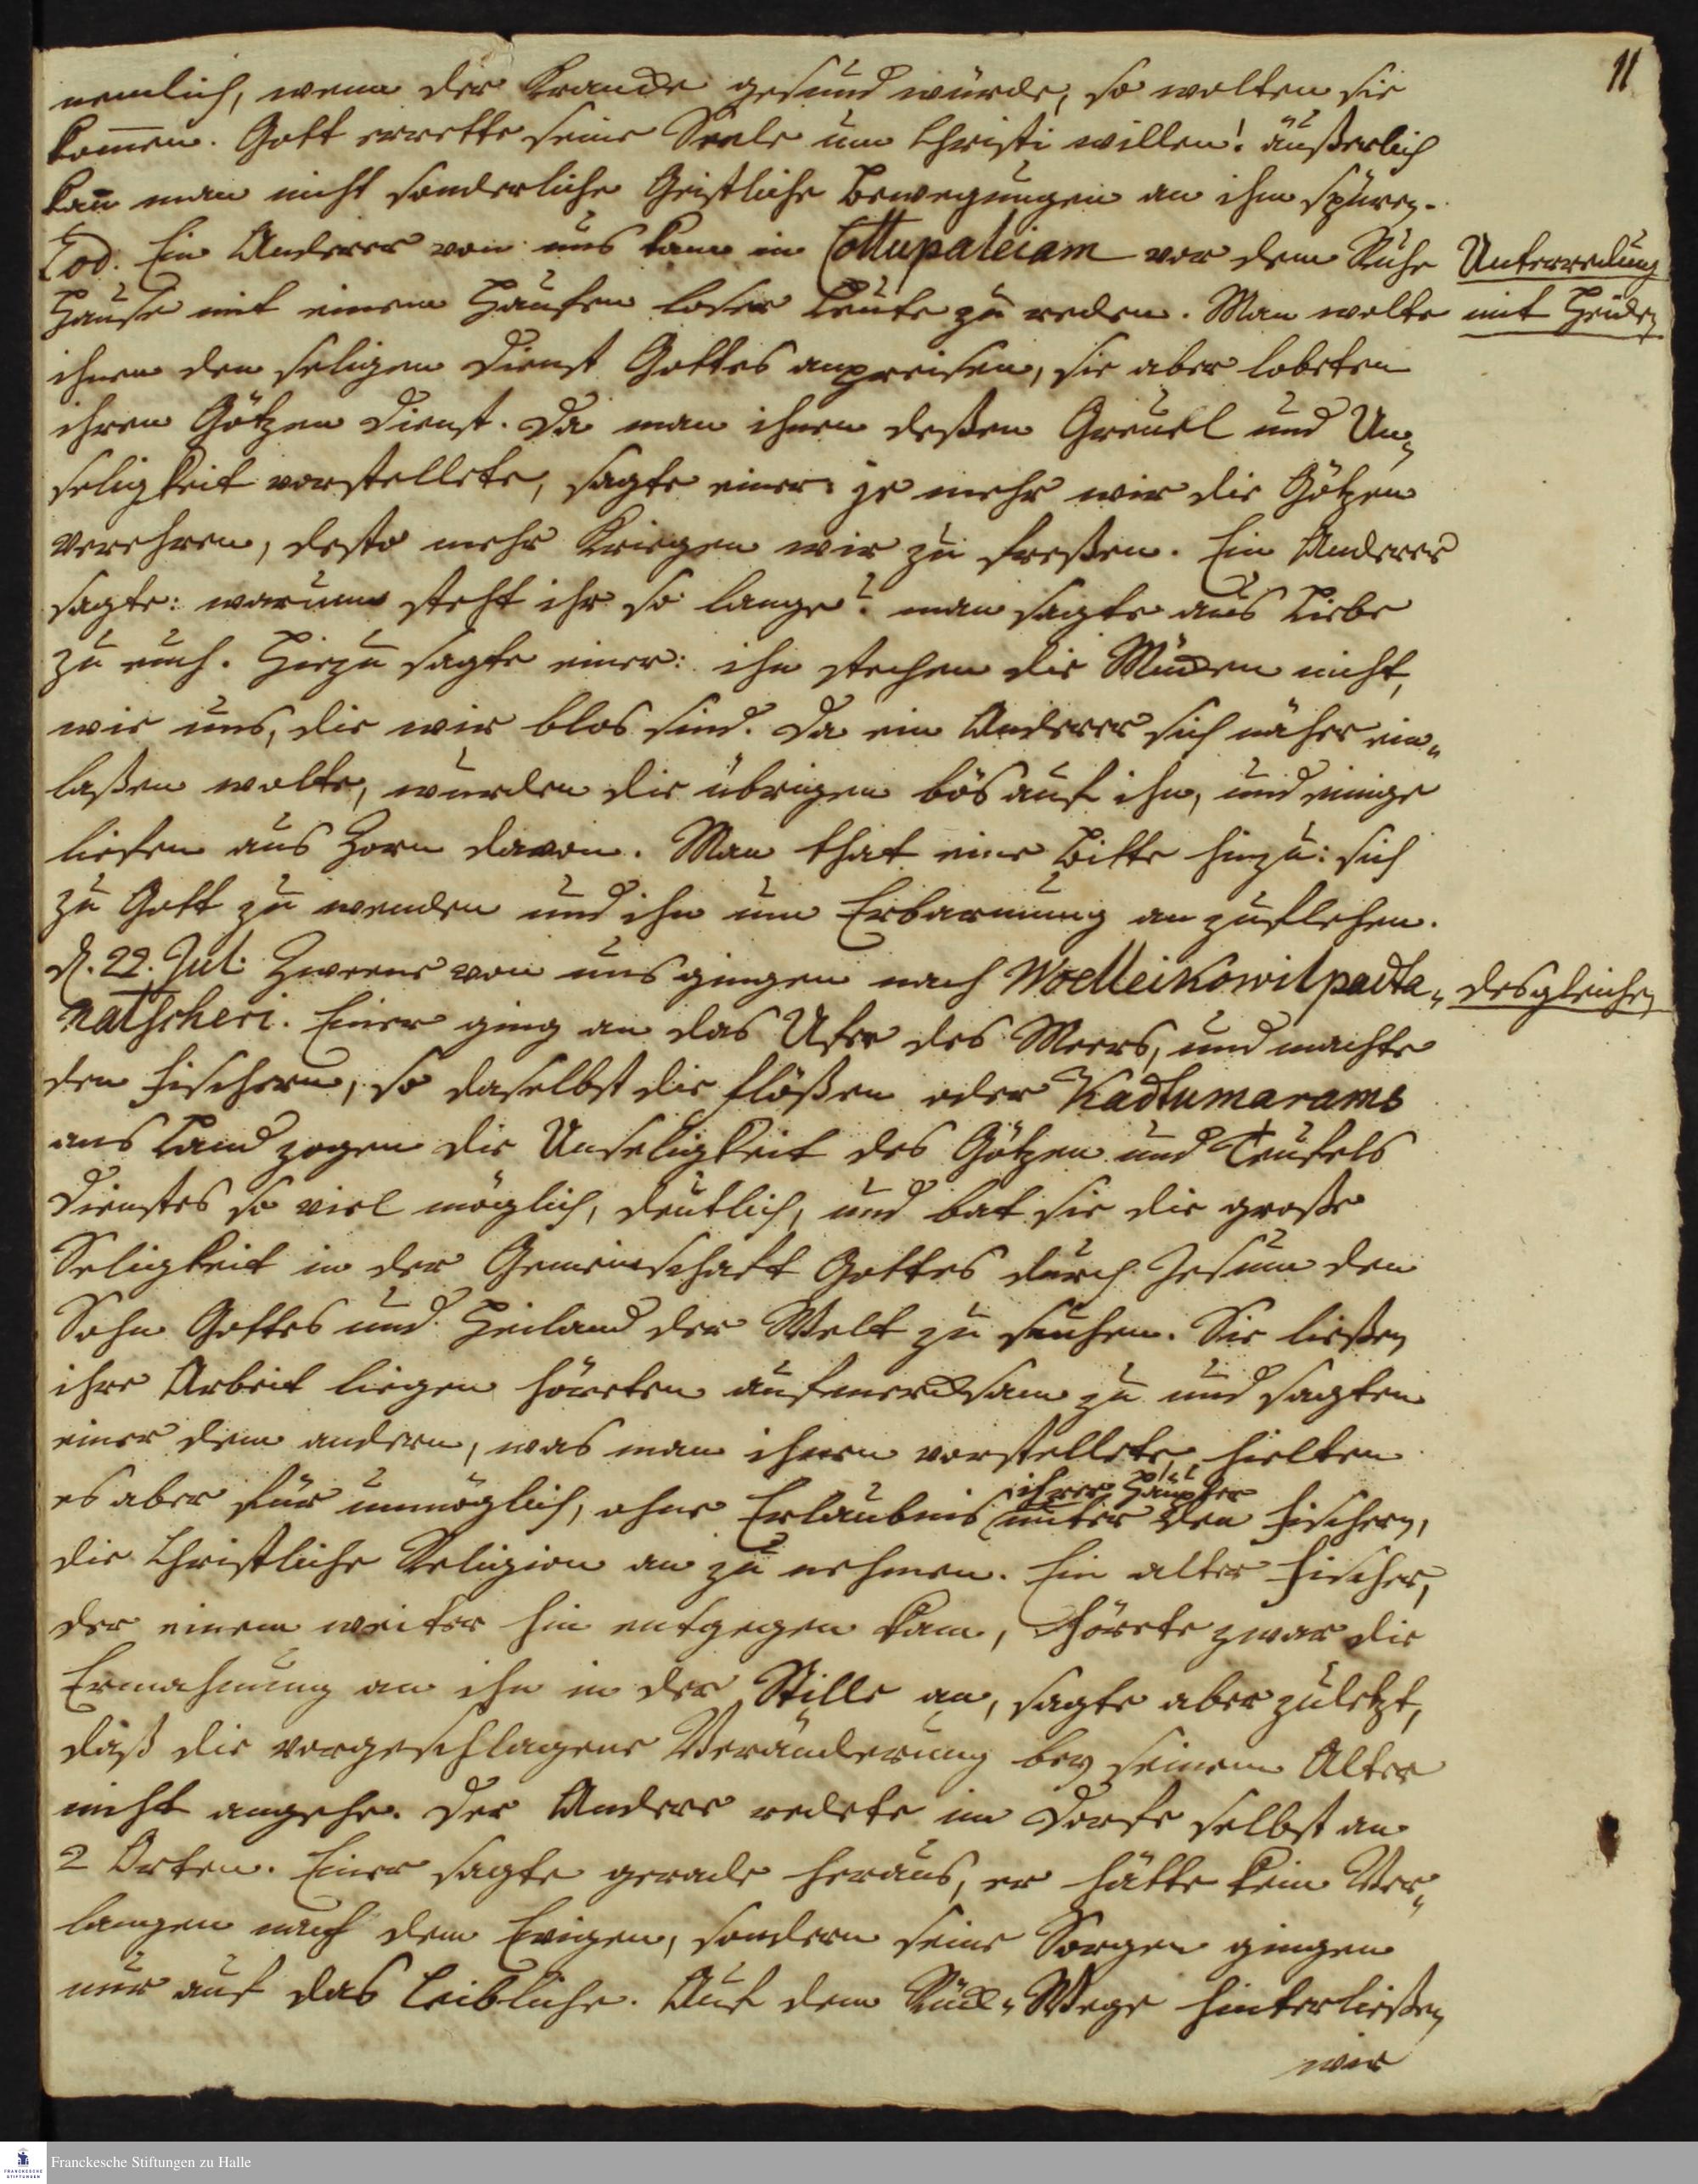 11
nemlich, wenn der Krancke gesund würde, so wolten sie
kom̄en. Gott errette seine Seele um Christi willen! äußerlich
kan̄ man nicht sonderliche Geistliche Bewegungen an ihm spüren.
Eod. Ein Anderer von uns kam in Cottupaleiam vor dem Ruhe
Unterredung
Hause mit einem Haufen loser Leute zu reden. Man wolte
mit Heiden
ihnen den seligen Dienst Gottes anpreisen, sie aber lobeten
ihren Götzen Dienst. Da man ihnen deßen Greuel und Un-
seligkeit vorstellete, sagte einer: je mehr wir die Götzen
verehren, desto mehr kriegen wir zu freßen. Ein Anderer
sagte: warum steht ihr so lange? man sagte aus Liebe
zu euch. Hiezu sagte einer: ihn stechen die Mücken nicht,
wie uns, die wir blos sind. Da ein Anderer sich näher ein-
laßen wolte, wurden die übrigen bös auf ihn, und einige
liefen aus Zorn davon. Man that eine Bitte hinzu: sich
zu Gott zu wenden und ihn um Erbarmung anzuflehen.
d. 22. Jul. Zweene von uns gingen nach Woelleikowilpadta-
desgleichen
natscheri. Einer ging an das Ufer des Meers, und machte
den Fischern, so daselbst die Flößen oder Kadtumarams
ans Land zogen die Unseligkeit des Götzen und Teufels
Dienstes so viel möglich, deutlich, und bat sie die große
Seligkeit in der Gemeinschaft Gottes durch Jesum den
Sohn Gottes und Heiland der Welt zu suchen. Sie ließen
ihre Arbeit liegen höreten aufmercksam zu und sagten
einer dem andern, was man ihnen vorstellete, hielten
ihrer Häupter
es aber für unmöglich, ohne Erlaubnis unter den Fischern,
die Christliche Religion an zu nehmen. Ein alter Fischer,
der einem weiter hin entgegen kam, hörete zwar die
Ermahnung an ihn in der Stille an, sagte aber zuletzt,
daß die vorgeschlagene Veränderung bey seinem Alter
nicht angehe. Der Andere redete im Dorfe selbst an
2 Orten. Einer sagte gerade heraus, er hätte kein Ver-
langen nach dem Ewigen, sondern seine Sorgen gingen
nur auf das Leibliche. Auf dem Rück-Wege hinterließen
wir
Franckesche Stiftungen zu Halle
FRANCKESCHE STIFTUNGEN